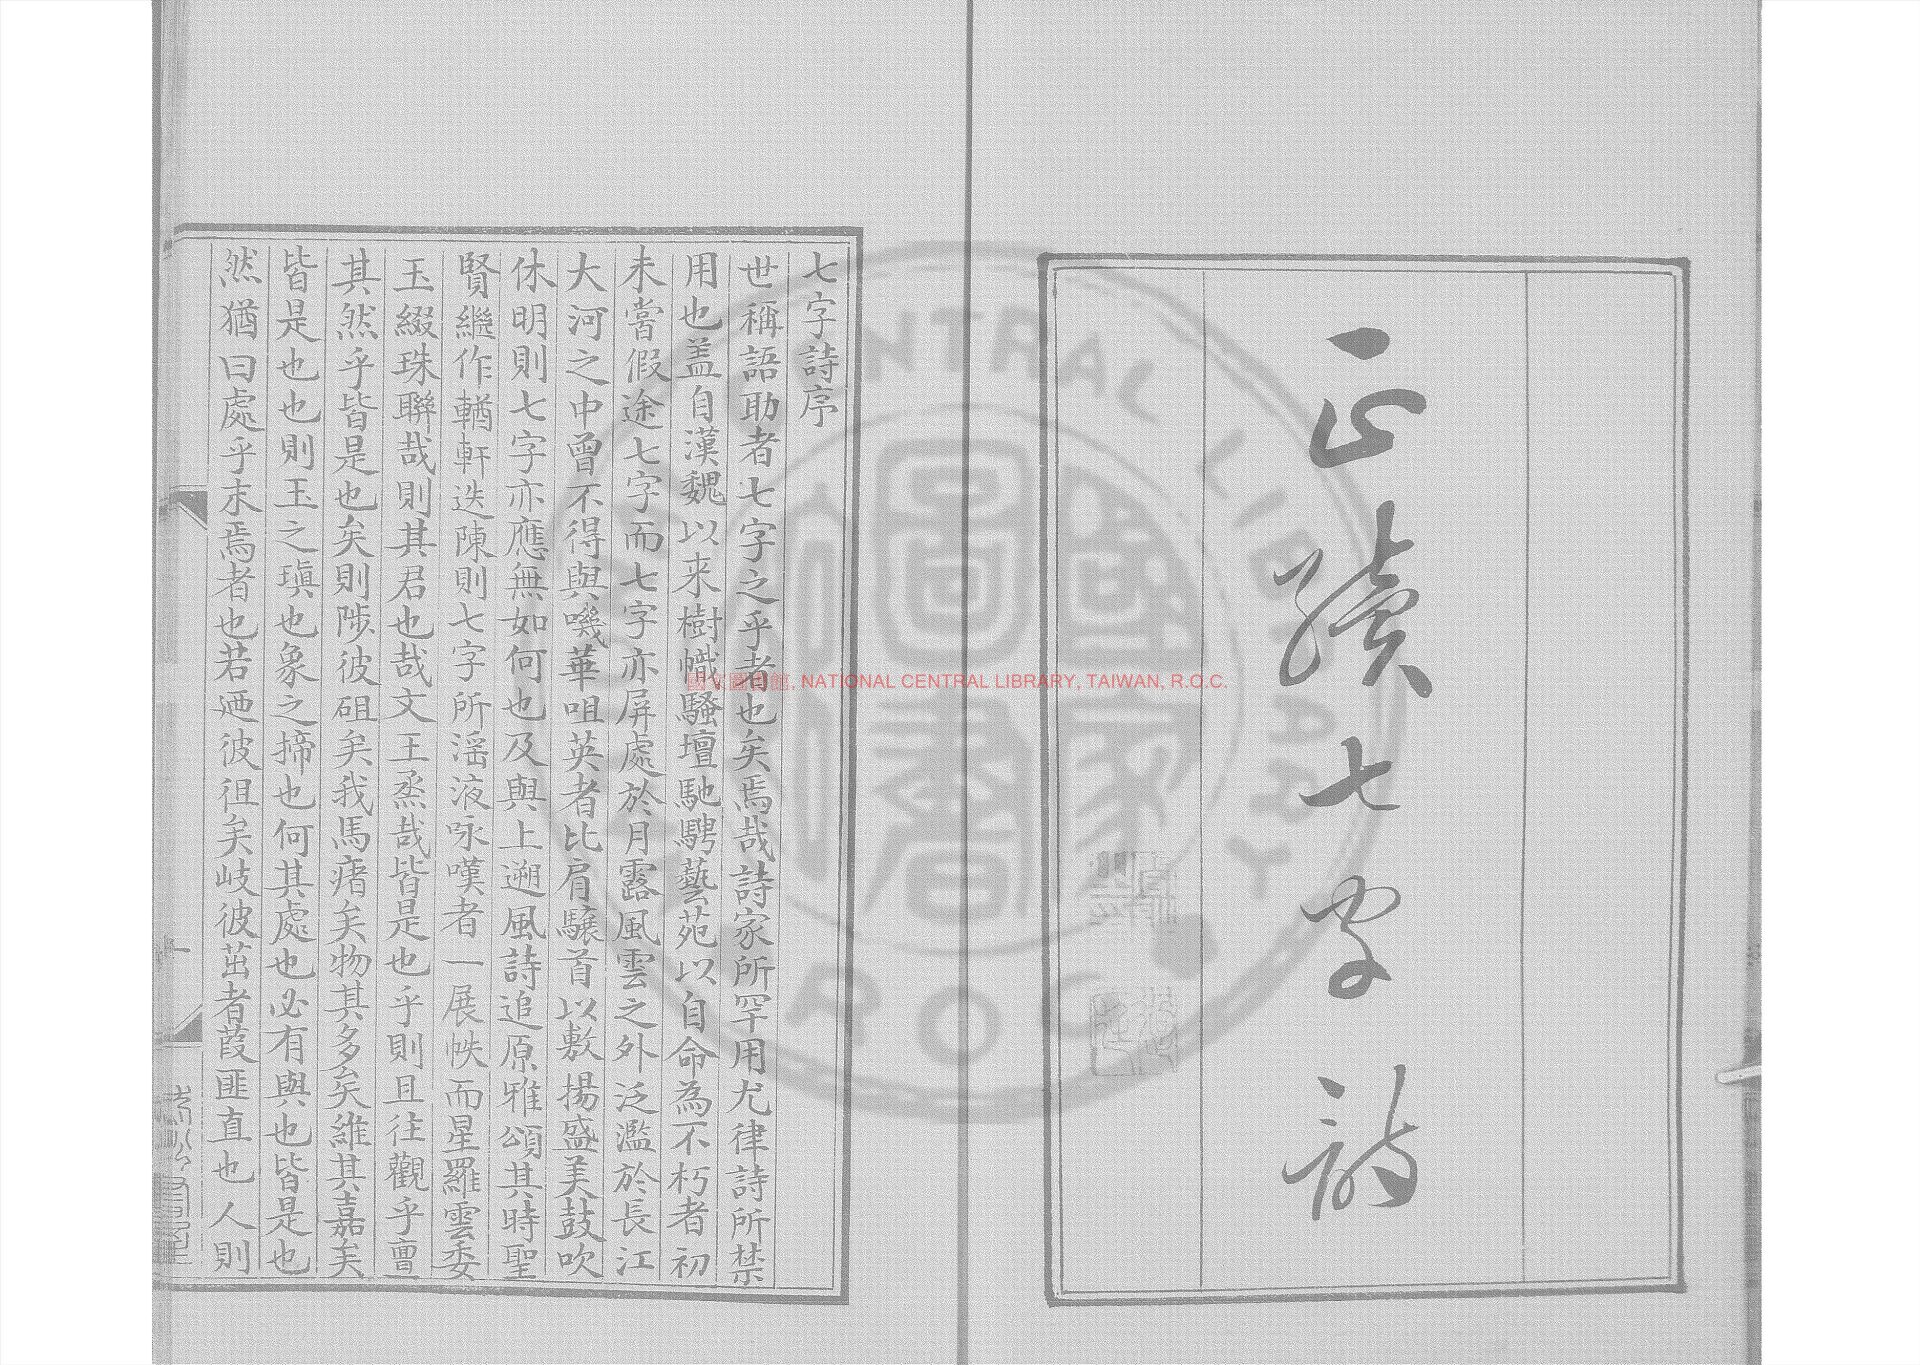 正續七字詩
七字詩序
世稱語助者七字之乎者也矣焉哉詩家所罕用尤律詩所禁
用也盖自漢魏以来樹幟騷壇馳騁藝苑以自命為不朽者初
未嘗假途七字而七字亦屏處於月露風雲之外泛濫於長江
大河之中曾不得與嘰華咀英者比肩驤首以敷揚盛美鼓吹
休明則七字亦應無如何也及與上遡風詩追原雅頌其時聖
賢繼作輶軒迭陳則七字所滛液咏嘆者一展帙而星羅雲委
玉綴珠聯哉則其君也哉文王烝哉皆是也乎則且往觀乎亶
其然乎皆是也矣則陟彼砠矣我馬瘏矣物其多矣維其嘉矣
皆是也也則玉之瑱也象之揥也何其處也必有與也皆是也
然猶曰處乎末焉者也若迺彼徂矣岐彼茁者葭匪直也人則
國家圖書館, NATIONAL CENTRAL LIBRARY, TAIWAN, R.O.C.
國家圖書館
NATIONAL CENTRAL LIBRARY
ROC